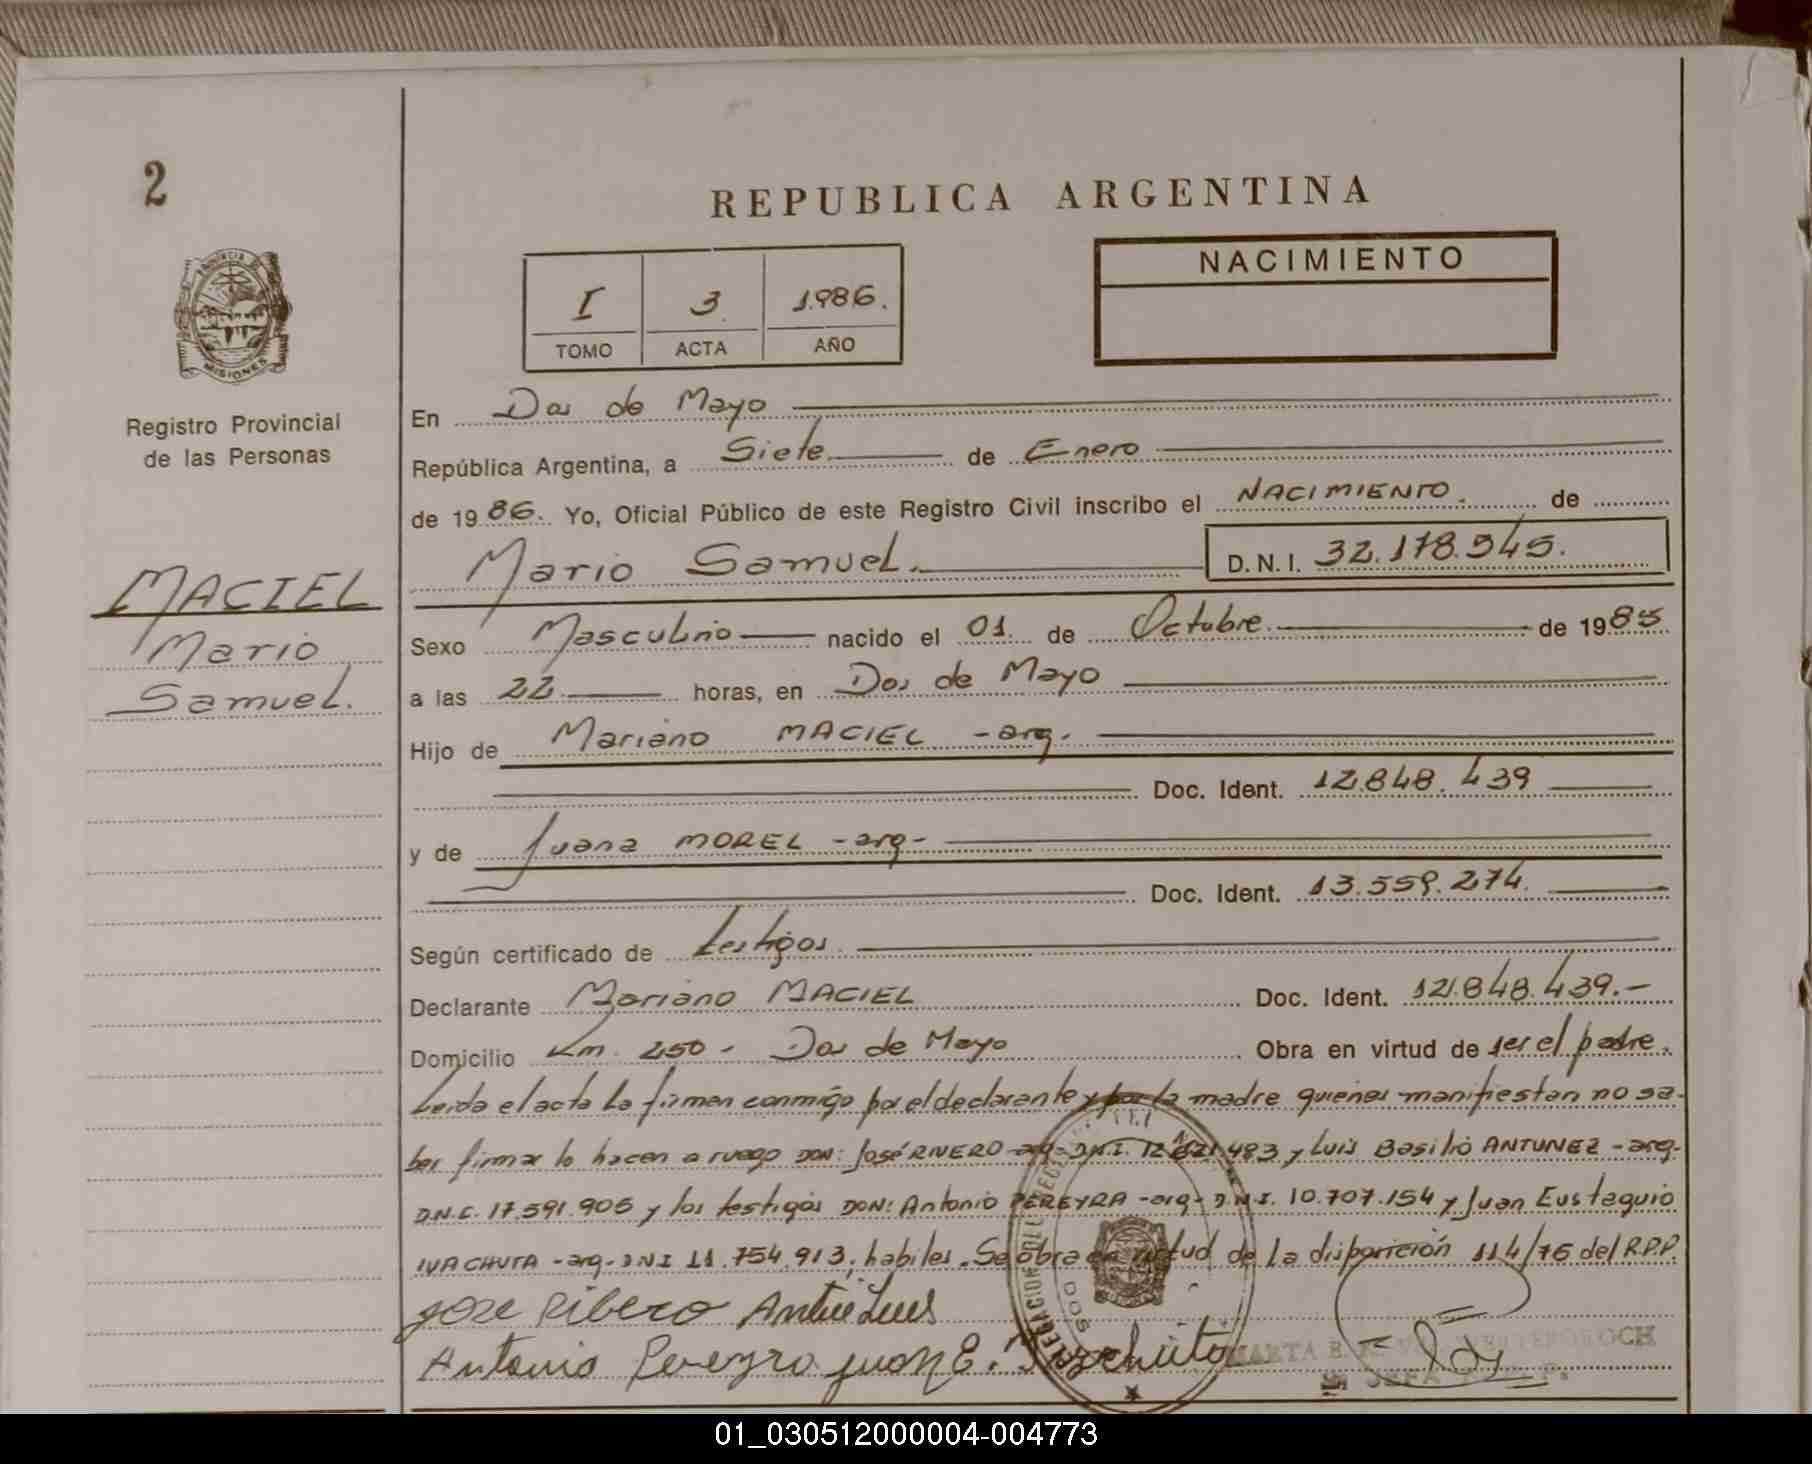 2
REPUBLICA ARGENTINA
NACIMIENTO
I 3 1.986.
TOMO ACTA AÑO
PROVINCIA DE
MISIONES
Registro Provincial
de las Personas
MACIEL
Mario
Samuel.
En Dos de Mayo
República Argentina, a Siete de Enero
de 19 86. Yo, Oficial Público de este Registro Civil inscribo el NACIMIENTO. de
Mario Samuel. D.N.I. 32.178.545.
Sexo Masculino nacido el 01. de Octubre de 1985
a las 22 horas, en Dos de Mayo
Hijo de Mariano MACIEL -arg.
Doc. Ident. 12.848.439
y de Juana MOREL -arg-
Doc. Ident. 13.559.274.
Según certificado de testigos
Declarante Mariano MACIEL Doc. Ident. 12.848.439.-
Domicilio Km. 250 - Dos de Mayo Obra en virtud de ser el padre.
Leida el acta la firman conmigo por el declarante y por la madre quienes manifiestan no sa-
ber firmar lo hacen a ruego DON: José RIVERO -arg- D.N.I. 483 y Luis Basilio ANTUNEZ -arg-
D.N.I. 17.591.905 y los testigos DON: Antonio PEREYRA -arg- D.N.I. 10.707.154 y Juan Eustaquio
IVACHUTA -arg- DNI 11.754.913, habiles. Se obra en virtud de la disposición 114/76 del R.P.P.
Jose Ribero Luis
Antonio Pereyra Juan E.
DELEGACION DOS
MARTA
JEFA
01_030512000004-004773